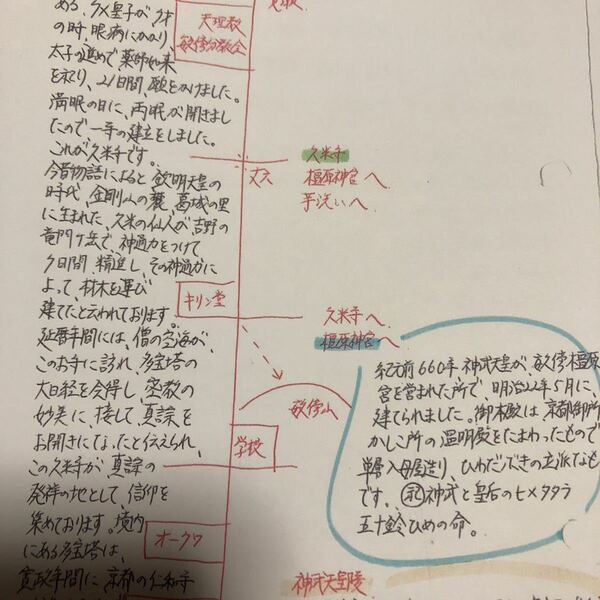 ある、クメ皇子が7才
の時、眼病にかかり、
太子の進めで、薬師如来
を祀り、21日間、願をかけました。
満眼の日に、両眼が開きまし
たので一寺の建立をしました。
これが久米寺です。
今昔物語によると欽明天皇の
時代、金剛山の麓、葛城の里
に生まれた、久米の仙人が吉野の
竜門ケ岳で、神通力をつけて
7日間、精進し、その神通力に
よって、材木を運び
建てたと云われております。
延暦年間には、僧の空海が、
このお寺に訪れ、多宝塔の
大日経を会得し、密教の
妙美に、接して、真諜を
お開きになったと伝えられ、
この久米寺が、真諜の
発祥の地として、信仰を
集めております。境内
にある多宝塔は、
寛政年間に京都の仁和寺
天理教
畝傍分教会
丈六
キリン堂
畝傍山
学校
オークワ
久米寺
橿原神宮へ
手洗いへ
久米寺へ
橿原神宮へ
紀元前660年、神武天皇が、畝傍橿原
宮を営まれた所で、明治22年5月に、
建てられました。御本殿は京都御所
かしこ所の温明殿をたまわったもので
単層入母屋造り、ひわだぶきの立派なも
です。㊒神武と皇后のヒメタタラ
五十鈴ひめの命。
神武天皇陵